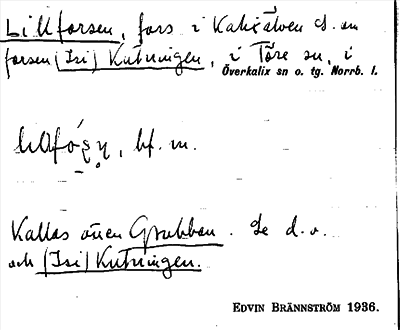 Lillforsen, fors i Kalixälven ℓ. en
forsen (Isi) Kutningen, i Töre sn, i
Överkalix sn o. tg. Norrb. l.
bf. m.
Kallas även Grubban. Se d. o.
och (Isi) Kutningen.
EDVIN BRÄNNSTRÖM 1936.